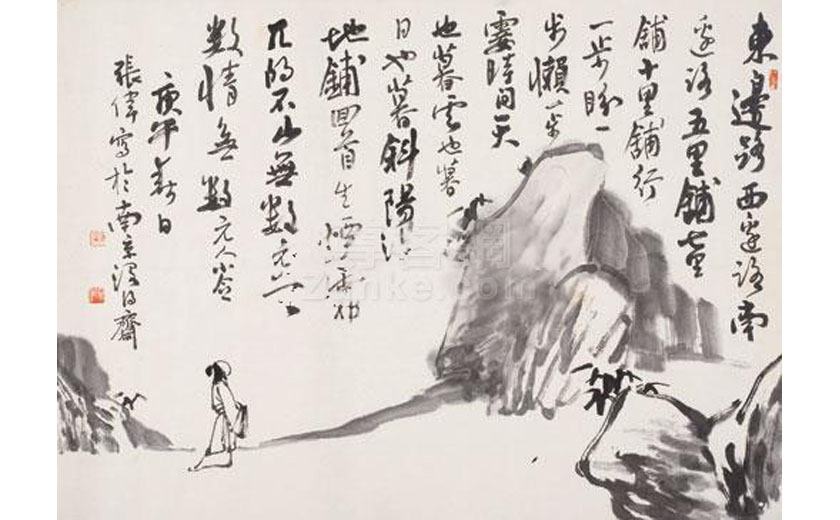 東邊路西邊路南
邊路五里鋪七里
鋪十里鋪行
一步盼一
步懶一步
霎時間天
也暮雲也暮
日也暮斜陽滿
地鋪回首生煙霧
兀的不山無數水無
數情無數元人小令
庚午春日
張偉寫於南京